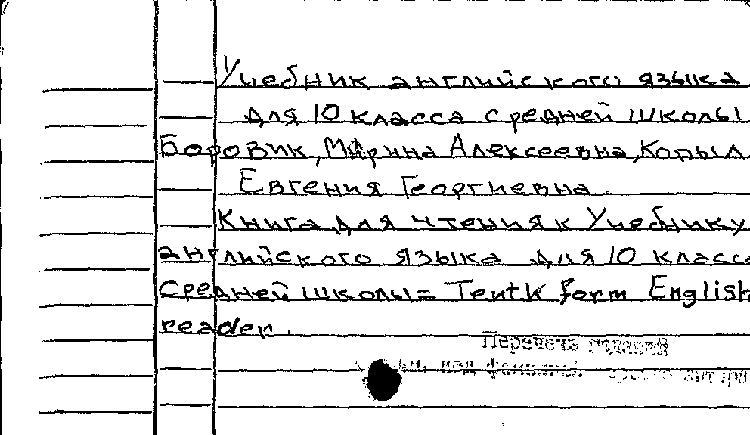 Учебник английского языка
для 10 класса средней школы
Боровик, Марина Алексеевна, Копыл
Евгения Георгиевна.
Книга для чтения к Учебнику
английского языка для 10 класса
средней школы = Tenth form English
reader.
Перечень изданий